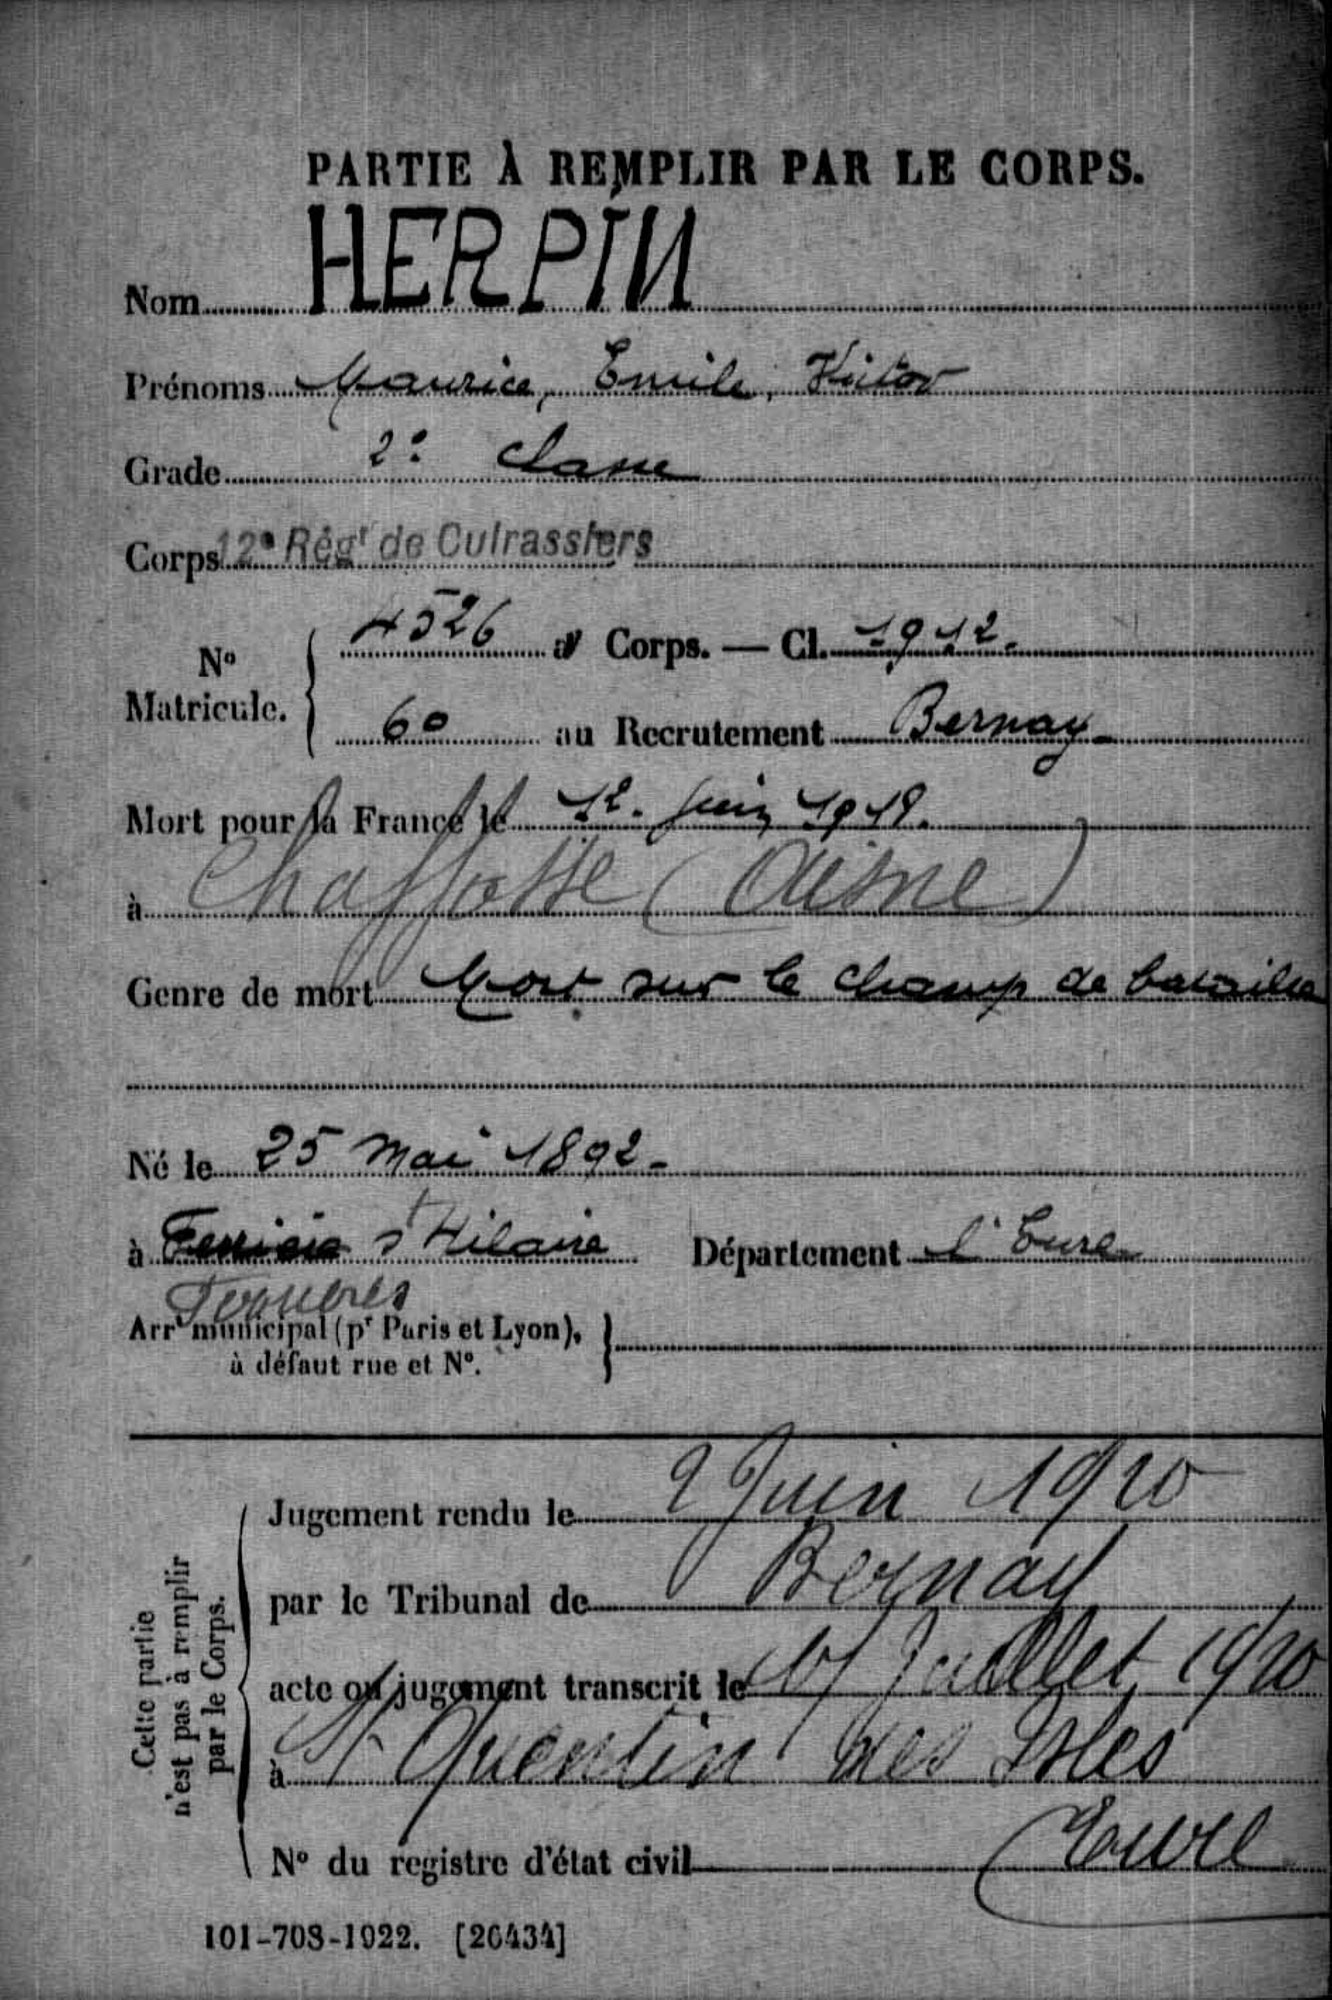 PARTIE À REMPLIR PAR LE CORPS.
Nom HERPIN
Prénoms Maurice, Emile, Victor
Grade 2e classe
Corps 12e Régt de Cuirassiers
No Matricule. 4526 au Corps. — Cl. 1912.
60 au Recrutement Bernay
Mort pour la France le 12 Juin 1918.
à (Aisne)
Genre de mort Mort sur le champ de bataille
Né le 25 Mai 1892
à St Hilaire Département l'Eure
Ferrières
Arrt municipal (pr Paris et Lyon),
à défaut rue et No.
Jugement rendu le 2 Juin 1920
par le Tribunal de Bernay
acte ou jugement transcrit le Juillet 1920
à St Quentin des Isles
Eure
No du registre d'état civil
Cette partie
n'est pas à remplir
par le Corps.
101-708-1922. [26434]